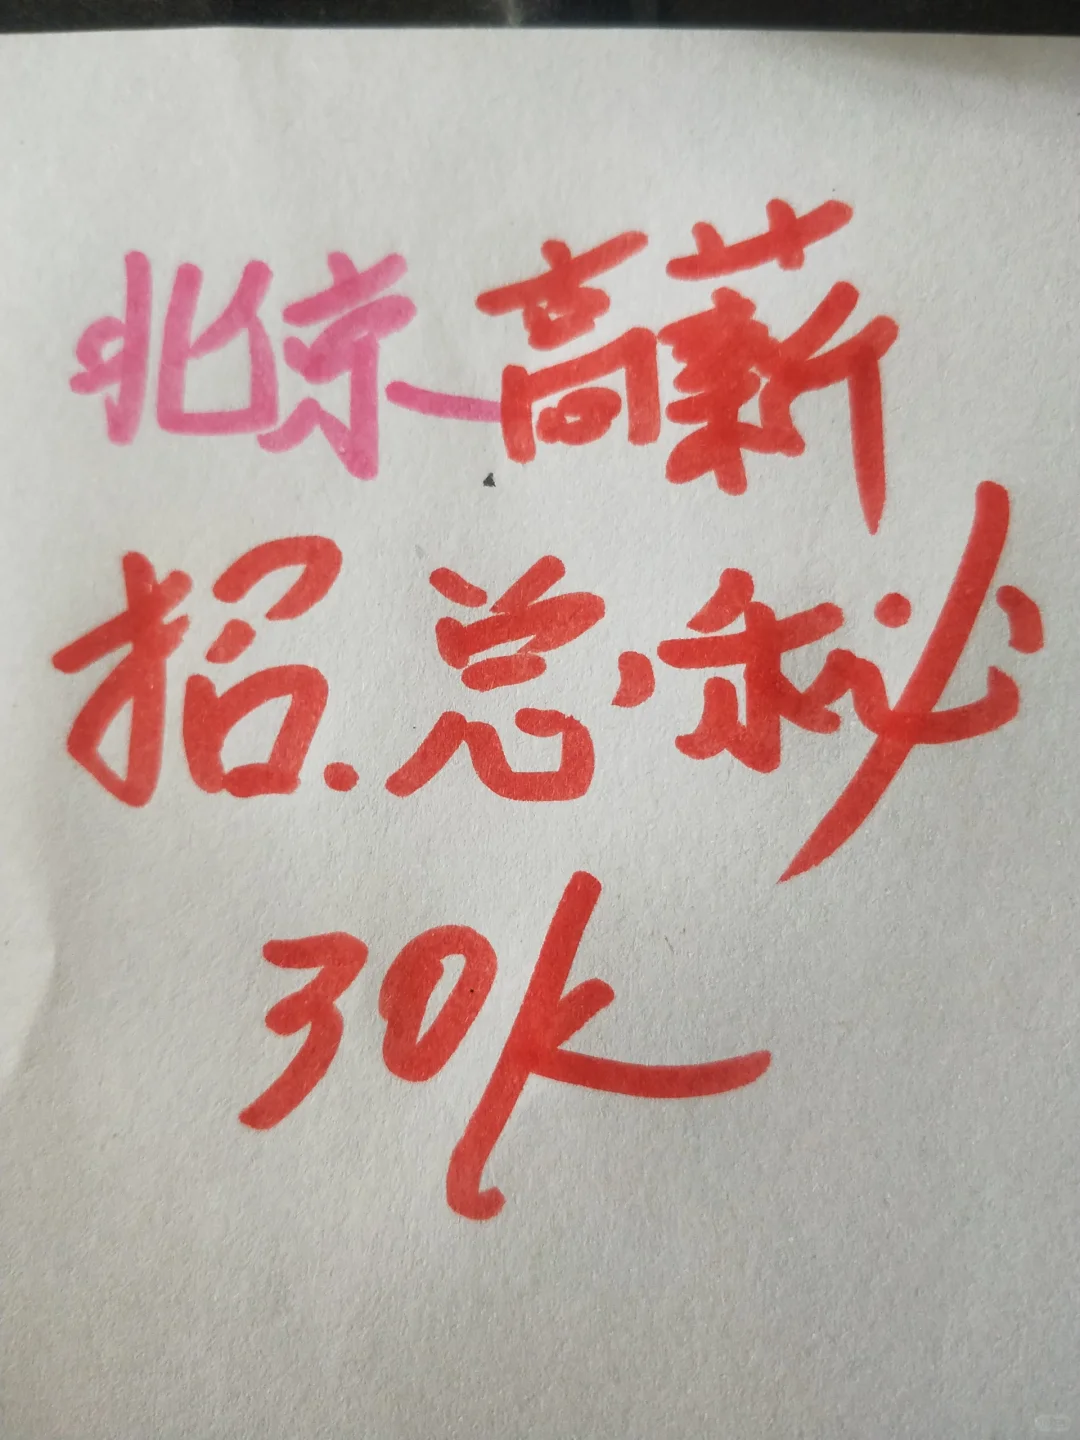 北京高薪
招.总秘
30k